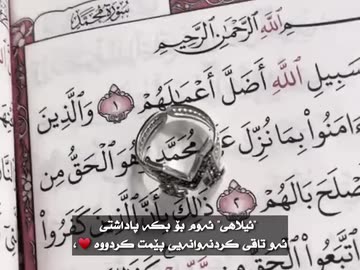 سُورَةُ مُحَمَّد
بِسْمِ اللَّهِ الرَّحْمَٰنِ الرَّحِيمِ
سَبِيلِ اللَّهِ أَضَلَّ أَعْمَالَهُمْ ١ وَالَّذِينَ
وَءَامَنُوا بِمَا نُزِّلَ مُحَمَّدٍ وَهُوَ الْحَقُّ مِن
وَأَصْلَحَ بَالَهُمْ ٢ ذَٰلِكَ
كَفَرُوا
اتَّبَعُوا الْحَقَّ مِن
"ئیلاهی" ئەوم بۆ بکە پاداشتی
ئەو تاقی کردنەوانەیی پێمت کردووە ❤️ ،